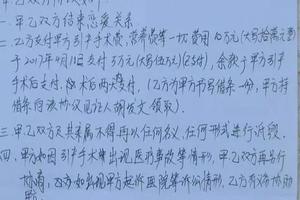 一. 甲乙双方结束恋爱关系
二. 乙方支付甲方引产手术费,营养费等一切费用10万元(大写拾万元整)
于2017年4月11日支付5万元(大写伍万元)(已付),余款于甲方引产
手术后支付,
(乙方为甲方书写借条一份,甲方持
借条向该协议见证人胡发文领取).
三. 甲乙双方及其亲属不得再以任何名义、任何形式进行诉讼.
四. 甲方如因引产手术出现医疗事故等情形,甲乙双方再另行
协商,乙方如出现甲方起诉医院等诉讼情形,乙方有义务协助